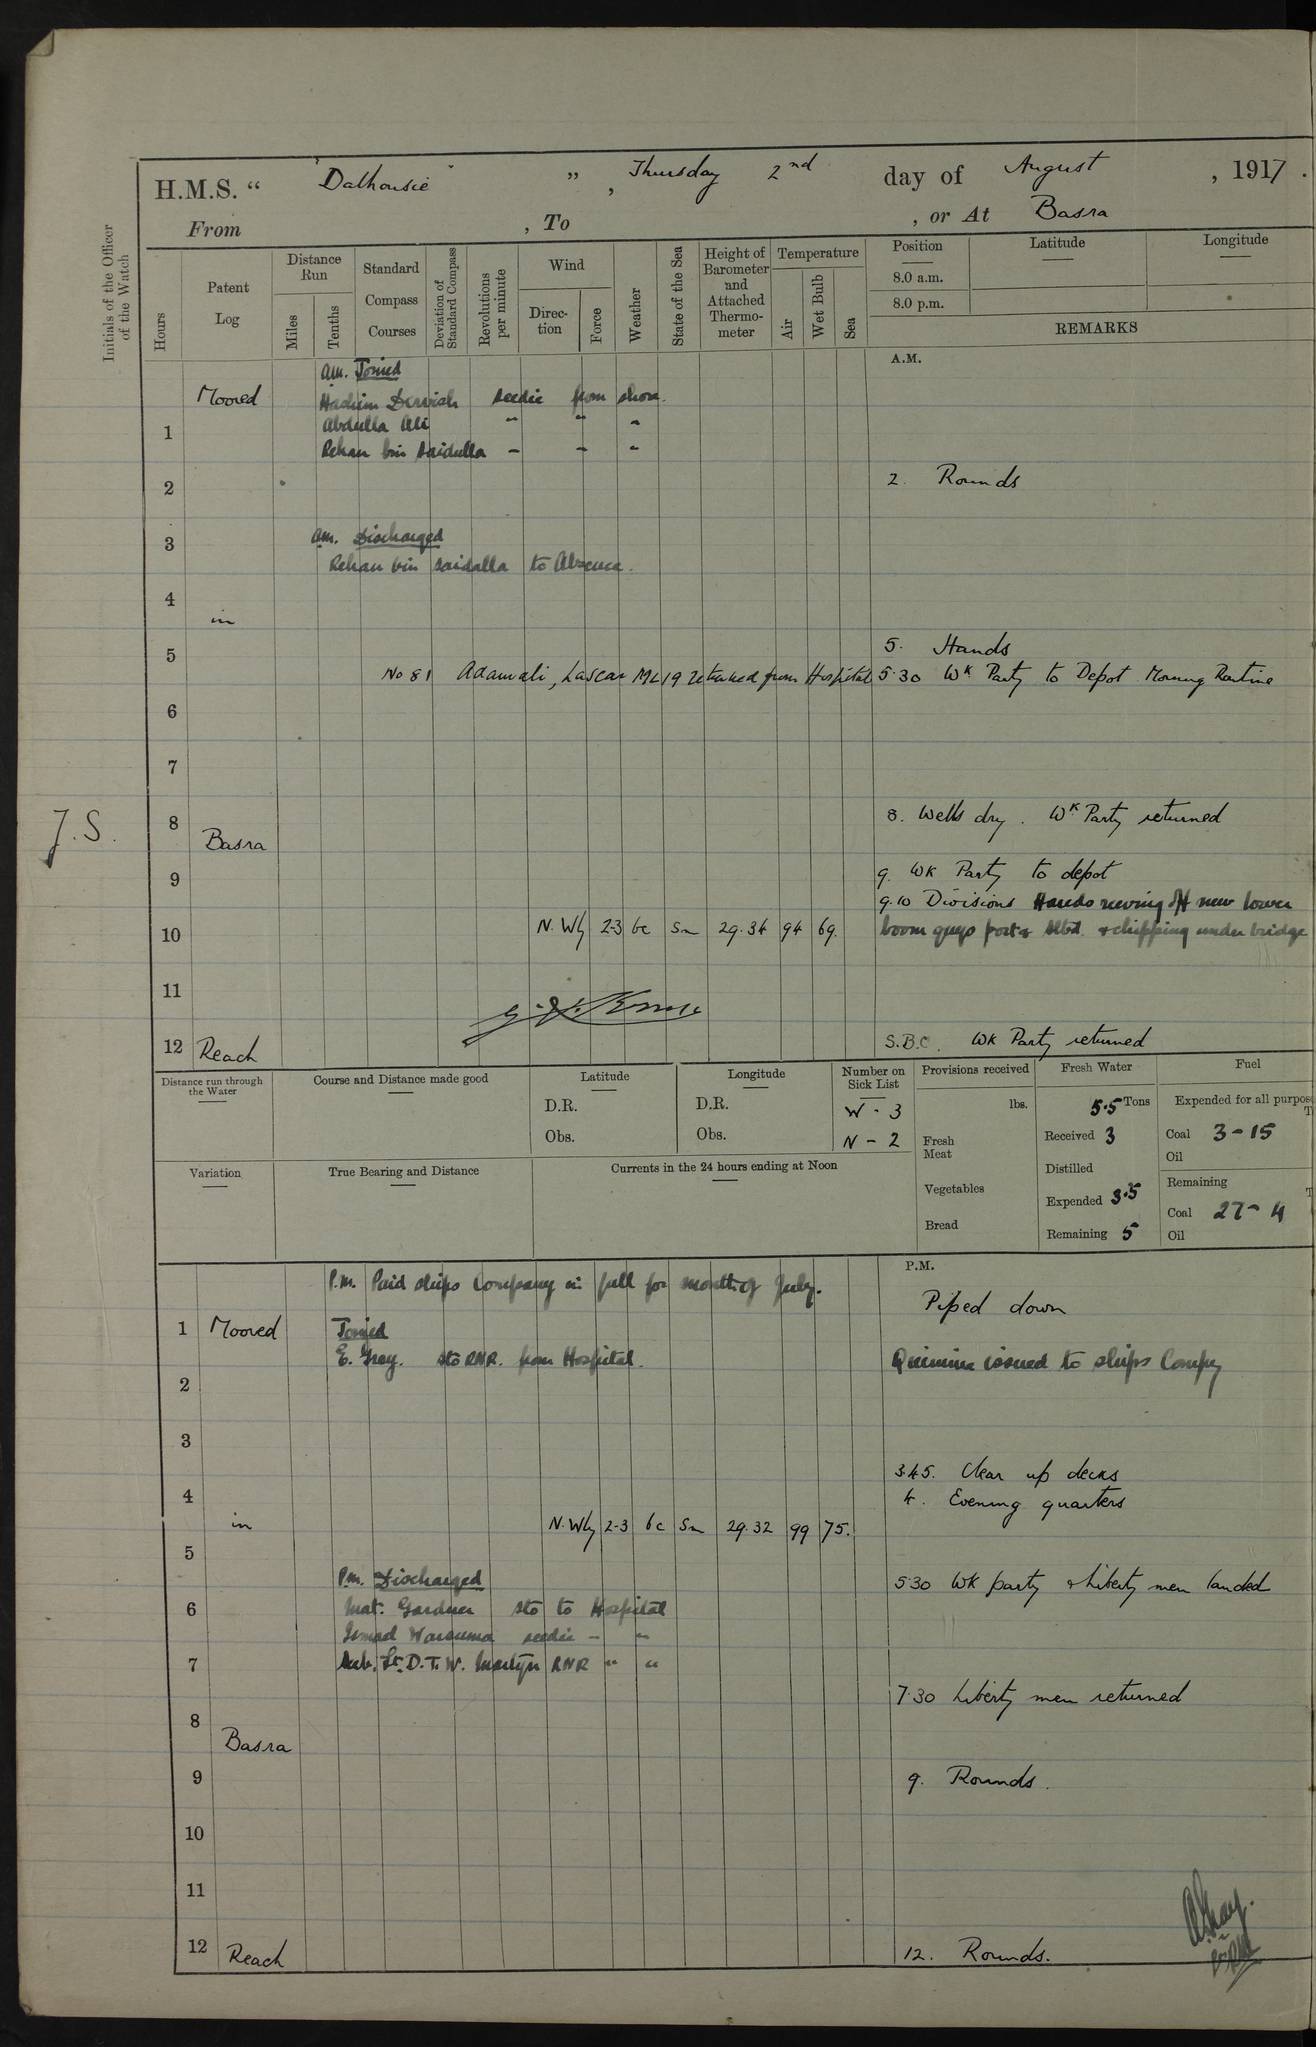 H.M.S. " "Dalhousie" ", Thursday 2nd day of August, 1917.
From , To , or At Basra
Initials of the Officer of the Watch
Hours
Patent Log
Distance Run
Miles
Tenths
Standard Compass Courses
Deviation of Standard Compass
Revolutions per minute
Wind
Direction
Force
Weather
State of the Sea
Height of Barometer and Attached Thermometer
Temperature
Air
Wet Bulb
Sea
Position
Latitude
Longitude
8.0 a.m.
8.0 p.m.
REMARKS
A.M.
am. Joined
Moored
Hachim Dervish seedie from shore.
1 Abdulla Ali " " "
Rehan bin Saidulla - - -
2 2. Rounds
3 am. Discharged
Rehan bin Saidalla to Absence.
4
in
5 5. Hands
No 81 Adamali, Lascar ML 19 returned from Hospital 5.30 Wk Party to Depot Morning Routine
6
7
J.S.
8 8. Wells dry. Wk Party returned
Basra
9 9. Wk Party to depot
9.10 Divisions Hands reeving off new lower
10 N.Wly 2-3 bc Sm 29.34 94 69. boom guys port & stbd. & chipping under bridge
11
12 Reach S.B.C. Wk Party returned
Distance run through the Water
Course and Distance made good
Latitude
D.R.
Obs.
Longitude
D.R.
Obs.
Number on Sick List
W - 3
N - 2
Provisions received
lbs.
Fresh Meat
Vegetables
Bread
Fresh Water
5.5 Tons
Received 3
Distilled
Expended 3.5
Remaining 5
Fuel
Expended for all purpos
Coal 3-15
Oil
Remaining
Coal 27-4
Oil
Variation
True Bearing and Distance
Currents in the 24 hours ending at Noon
P.M.
P.m. Paid ships company in full for month of July.
Piped down
1 Moored Joined
E. Gray. sto RNR. from Hospital. Quinine issued to ships Compy
2
3
3.45. Clear up decks
4 4. Evening quarters
in N.Wly 2-3 bc Sm 29.32 99 75.
5
P.m. Discharged 5.30 Wk party & Liberty men landed
6 Mat. Gardner sto to Hospital
Ismad Warsuma seedie - "
7 Sub. Lt. D.T.W. Martyn RNR " "
7.30 Liberty men returned
8
Basra
9 9. Rounds.
10
11
12 Reach 12. Rounds.